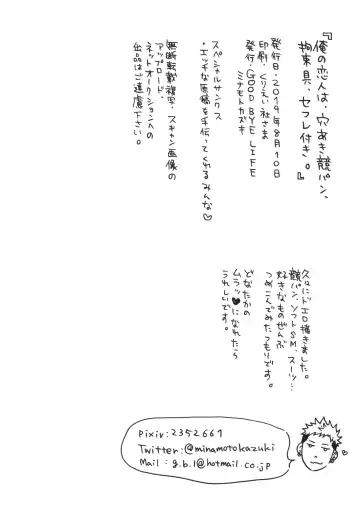 『俺の恋人は、穴あき競パン、
拘束具、セフレ付き。』
発行日・2019年8月10日
印刷・くりえい社さま
発行・GOOD BYE LIFE
ミナモトカズキ
スペシャルサンクス
・エッチな原稿を手伝ってくれるみんな♡
無断転載・複写・スキャン画像の
アップロード・
ネットオークションへの
出品はご遠慮下さい。
久々にドエロ描きました。
競パン、ソフトSM、スーツ…
好きなものぜんぶ
つめこんでみたつもりです。
どなたかの
ムラッ♥になれたら
うれしいです。
Pixiv:2352661
Twitter:@minamotokazuki
Mail:g.b.l@hotmail.co.jp